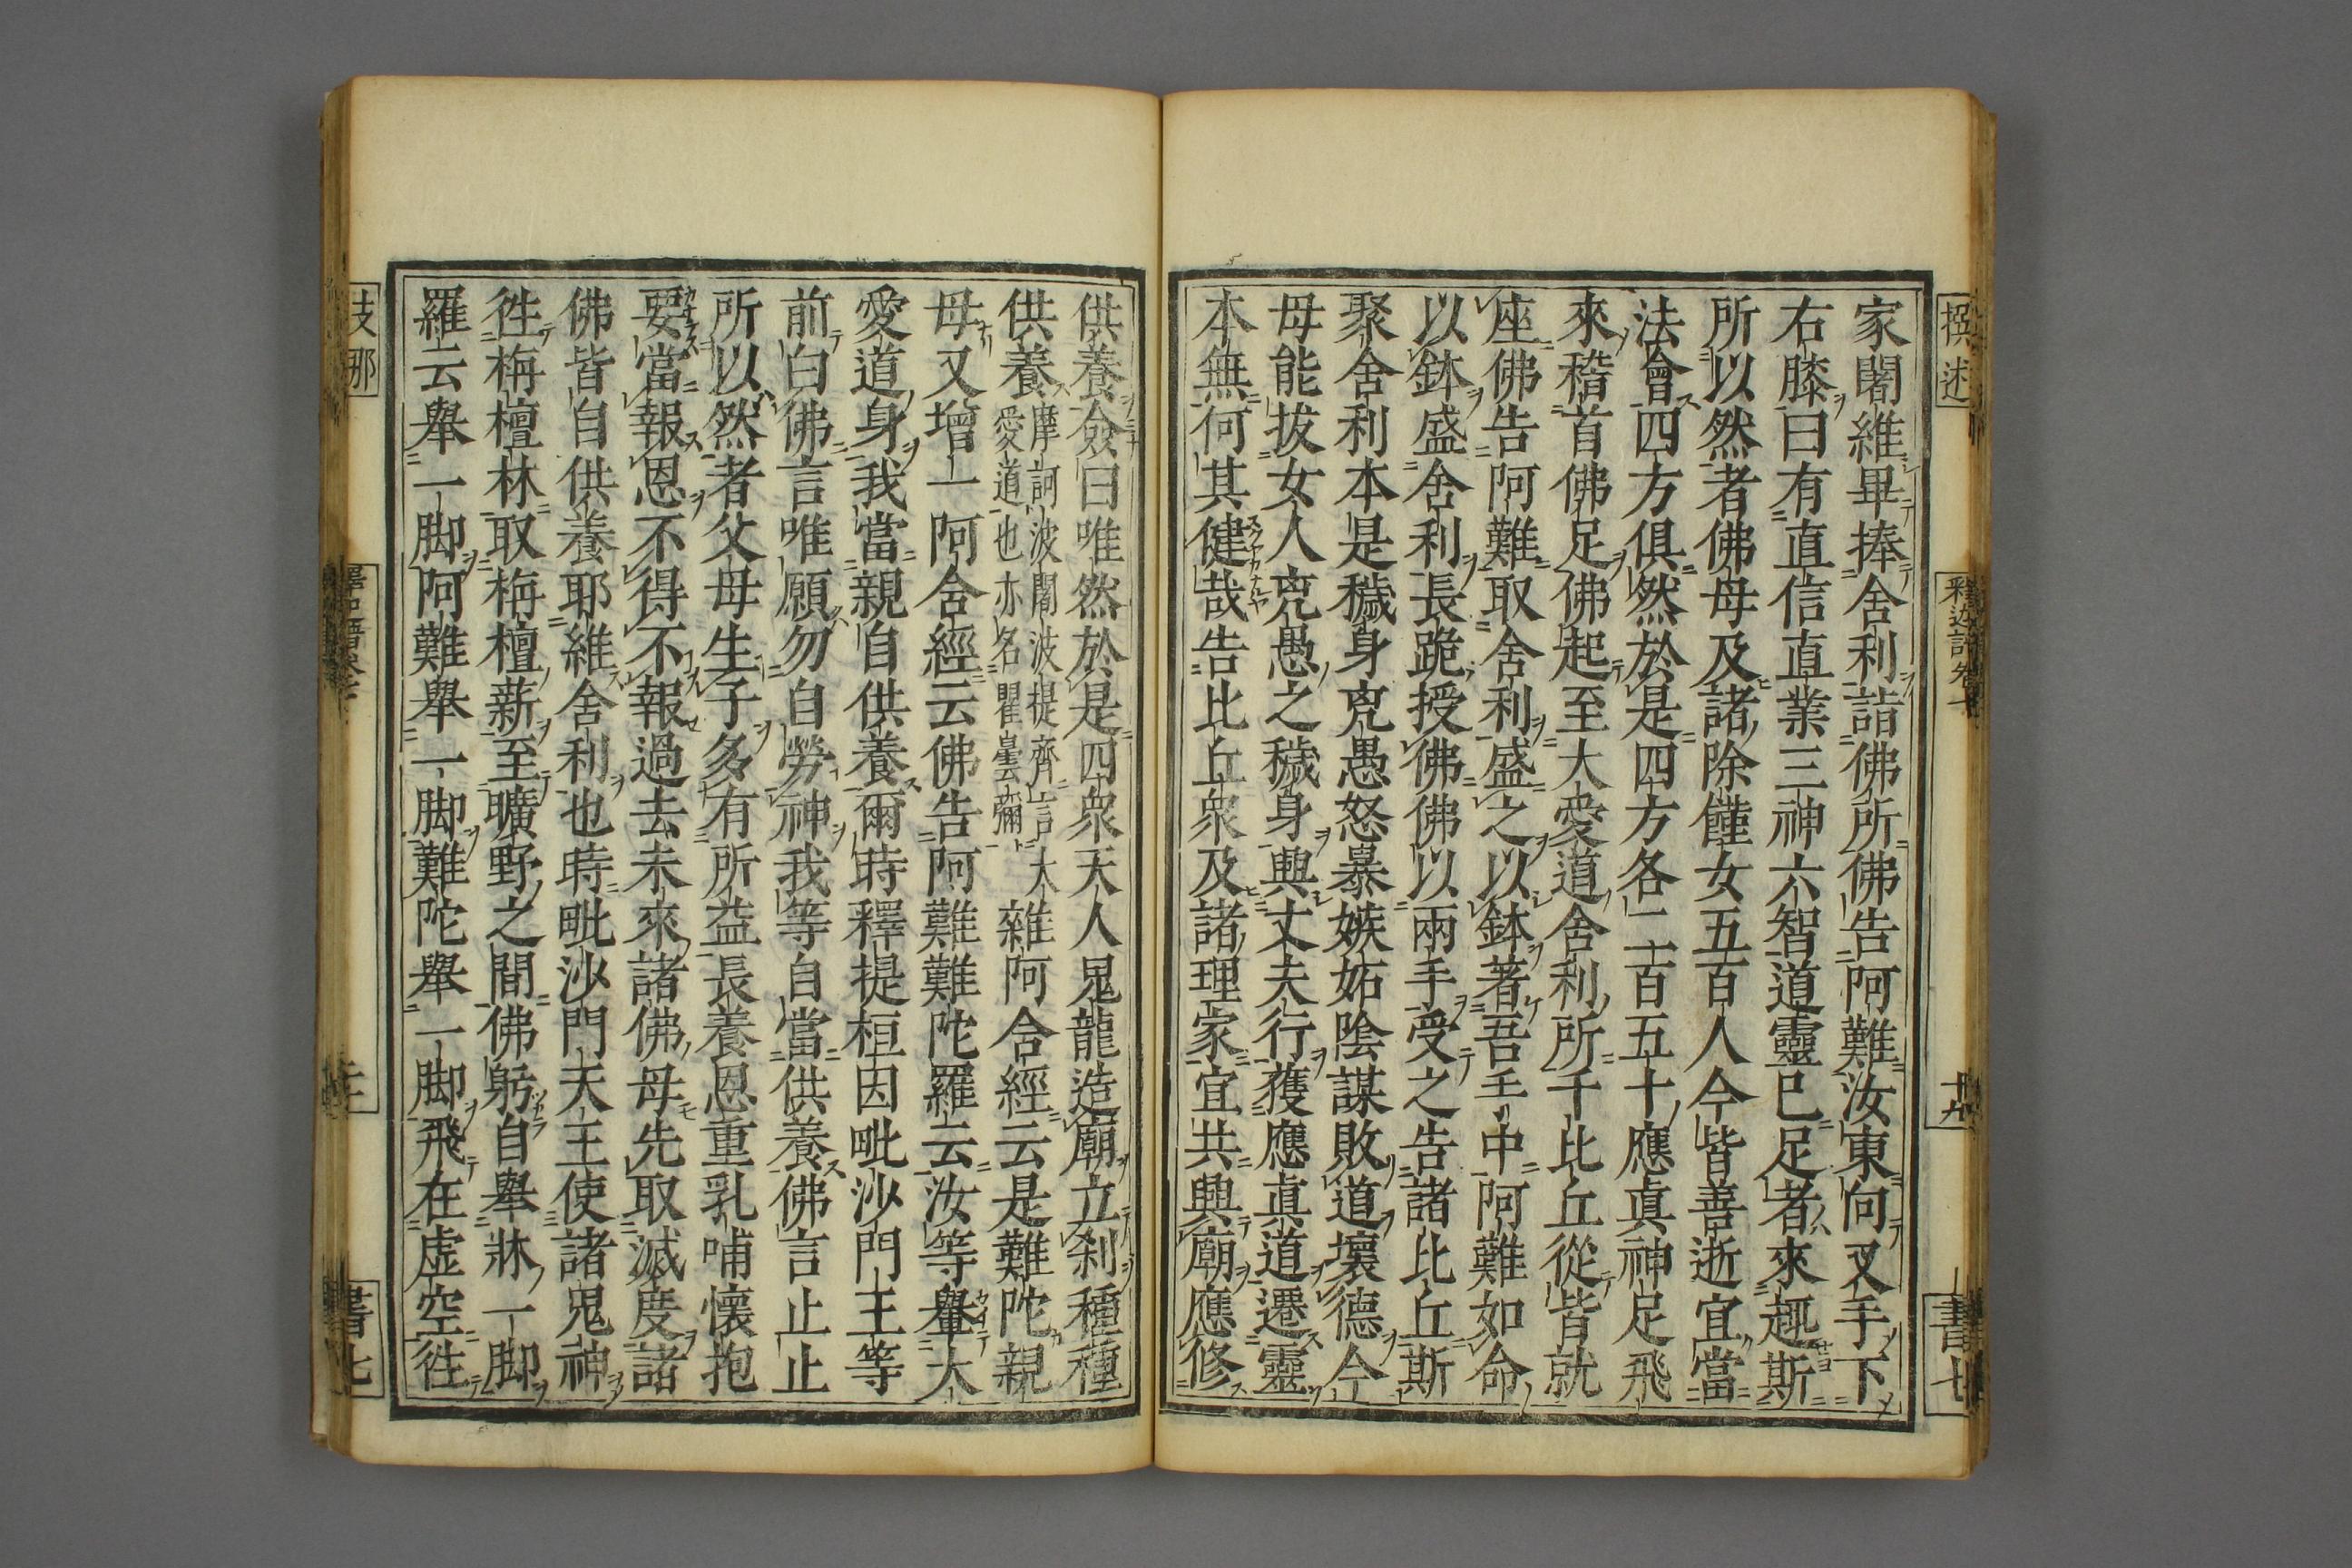 撰述
釋迦譜卷七
十九
書七
家闍維畢捧舍利詣佛所佛告阿難汝東向叉手下
右膝曰有直信直業三神六智道靈已足者來趣斯
所以然者佛母及諸除饉女五百人今皆善逝宜當
法會四方俱然於是四方各二百五十應眞神足飛
來稽首佛足佛起至大愛道舍利所千比丘從皆就
座佛告阿難取舍利盛之以鉢著吾手中阿難如命
以鉢盛舍利長跪授佛佛以兩手受之告諸比丘斯
聚舍利本是穢身兇愚怒暴嫉妬陰謀敗道壞德今
母能拔女人兇愚之穢身興丈夫行獲應眞道遷靈
本無何其健哉告比丘衆及諸理家宜共興廟應修
供養僉曰唯然於是四衆天人鬼龍造廟立刹種種
供養摩訶波闍波提齊言大愛道也亦名瞿曇彌雜阿含經云是難陀親
母又增一阿含經云佛告阿難難陀羅云汝等轝大
愛道身我當親自供養爾時釋提桓因毗沙門王等
前白佛言唯願勿自勞神我等自當供養佛言止止
所以然者父母生子多有所益長養恩重乳哺懷抱
要當報恩不得不報過去未來諸佛母先取滅度諸
佛皆自供養耶維舍利也時毗沙門天王使諸鬼神
徃栴檀林取栴檀薪至曠野之間佛躬自舉牀一脚
羅云舉一脚阿難舉一脚難陀舉一脚飛在虛空徃
支那
書七